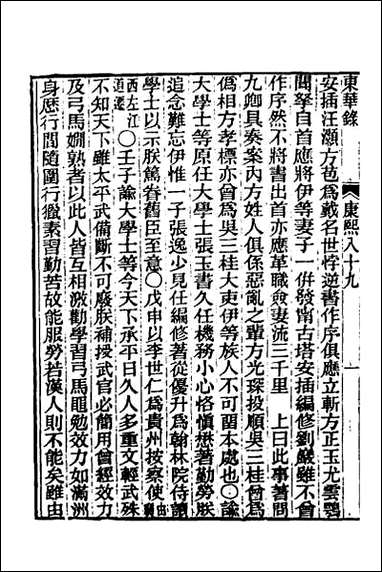 東華錄 康熙八十九 一
安插汪灝方苞爲戴名世悖逆書作序俱應立斬方正玉尤雲鶚
聞拏自首應將伊等妻子一併發甯古塔安插編修劉巖雖不曾
作序然不將書出首亦應革職僉妻流三千里 上曰此事著問
九卿具奏案內方姓人俱係惡亂之輩方光琛投順吳三桂曾爲
僞相方孝標亦曾爲吳三桂大吏伊等族人不可留本處也○諭
大學士等原任大學士張玉書久任機務小心恪慎懋著勤勞朕
追念難忘伊惟一子張逸少見任編修著從優升爲翰林院侍讀
學士以示朕篤眷舊臣至意○戊申以李世仁爲貴州按察使由廣
西左江道遷○壬子諭大學士等今天下承平日久人多重文輕武殊
不知天下雖太平武備斷不可廢朕補授武官必簡用曾經效力
及弓馬嫺熟者以此人皆互相激勸學習弓馬黽勉效力如滿洲
身歷行間隨圍行獵素習勤苦故能服勞若漢人則不能矣雖由